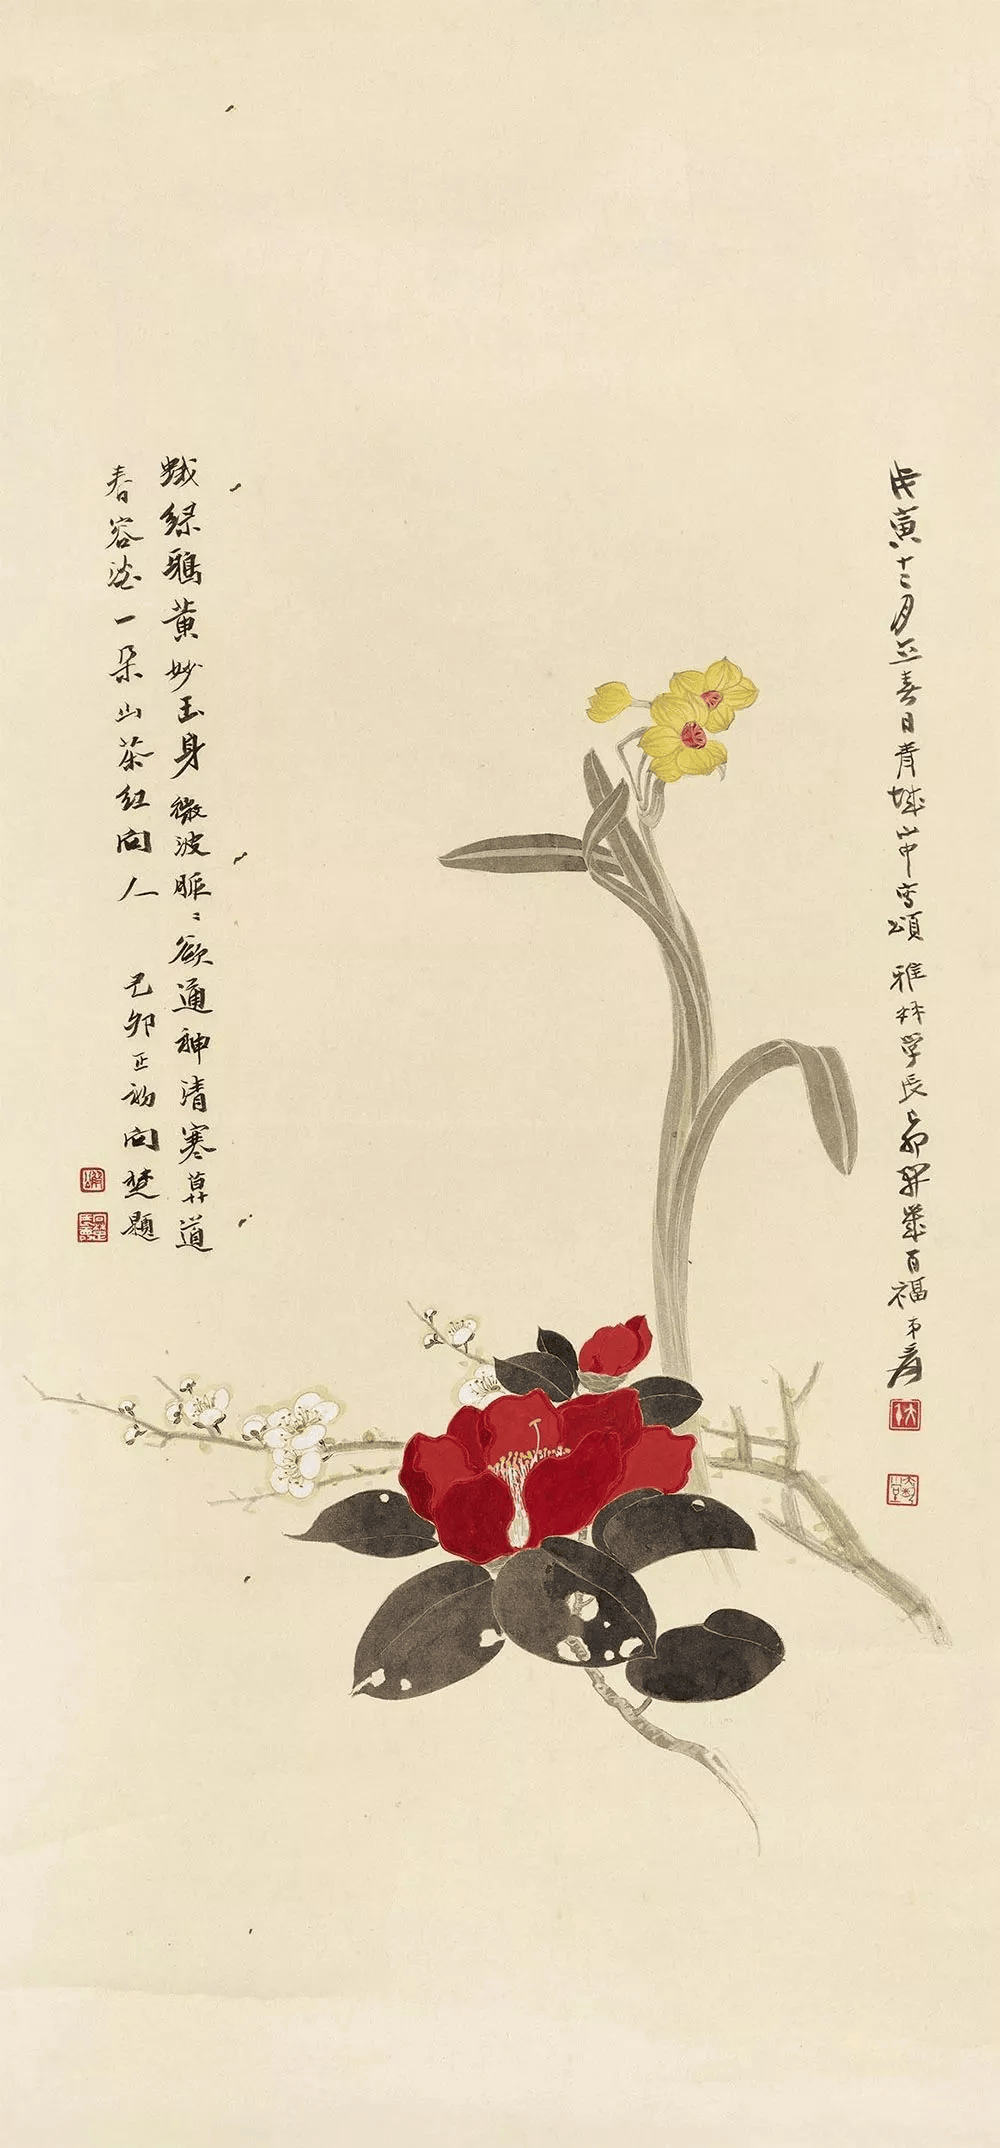 戊寅十二月立春日青城山中寫頌 雅林学長己卯開歲百福 弟爰
蛾綠鵝黃妙玉身微波脈〻欲通神清寒莫道
春容一朵山茶紅向人 己卯正初向楚題